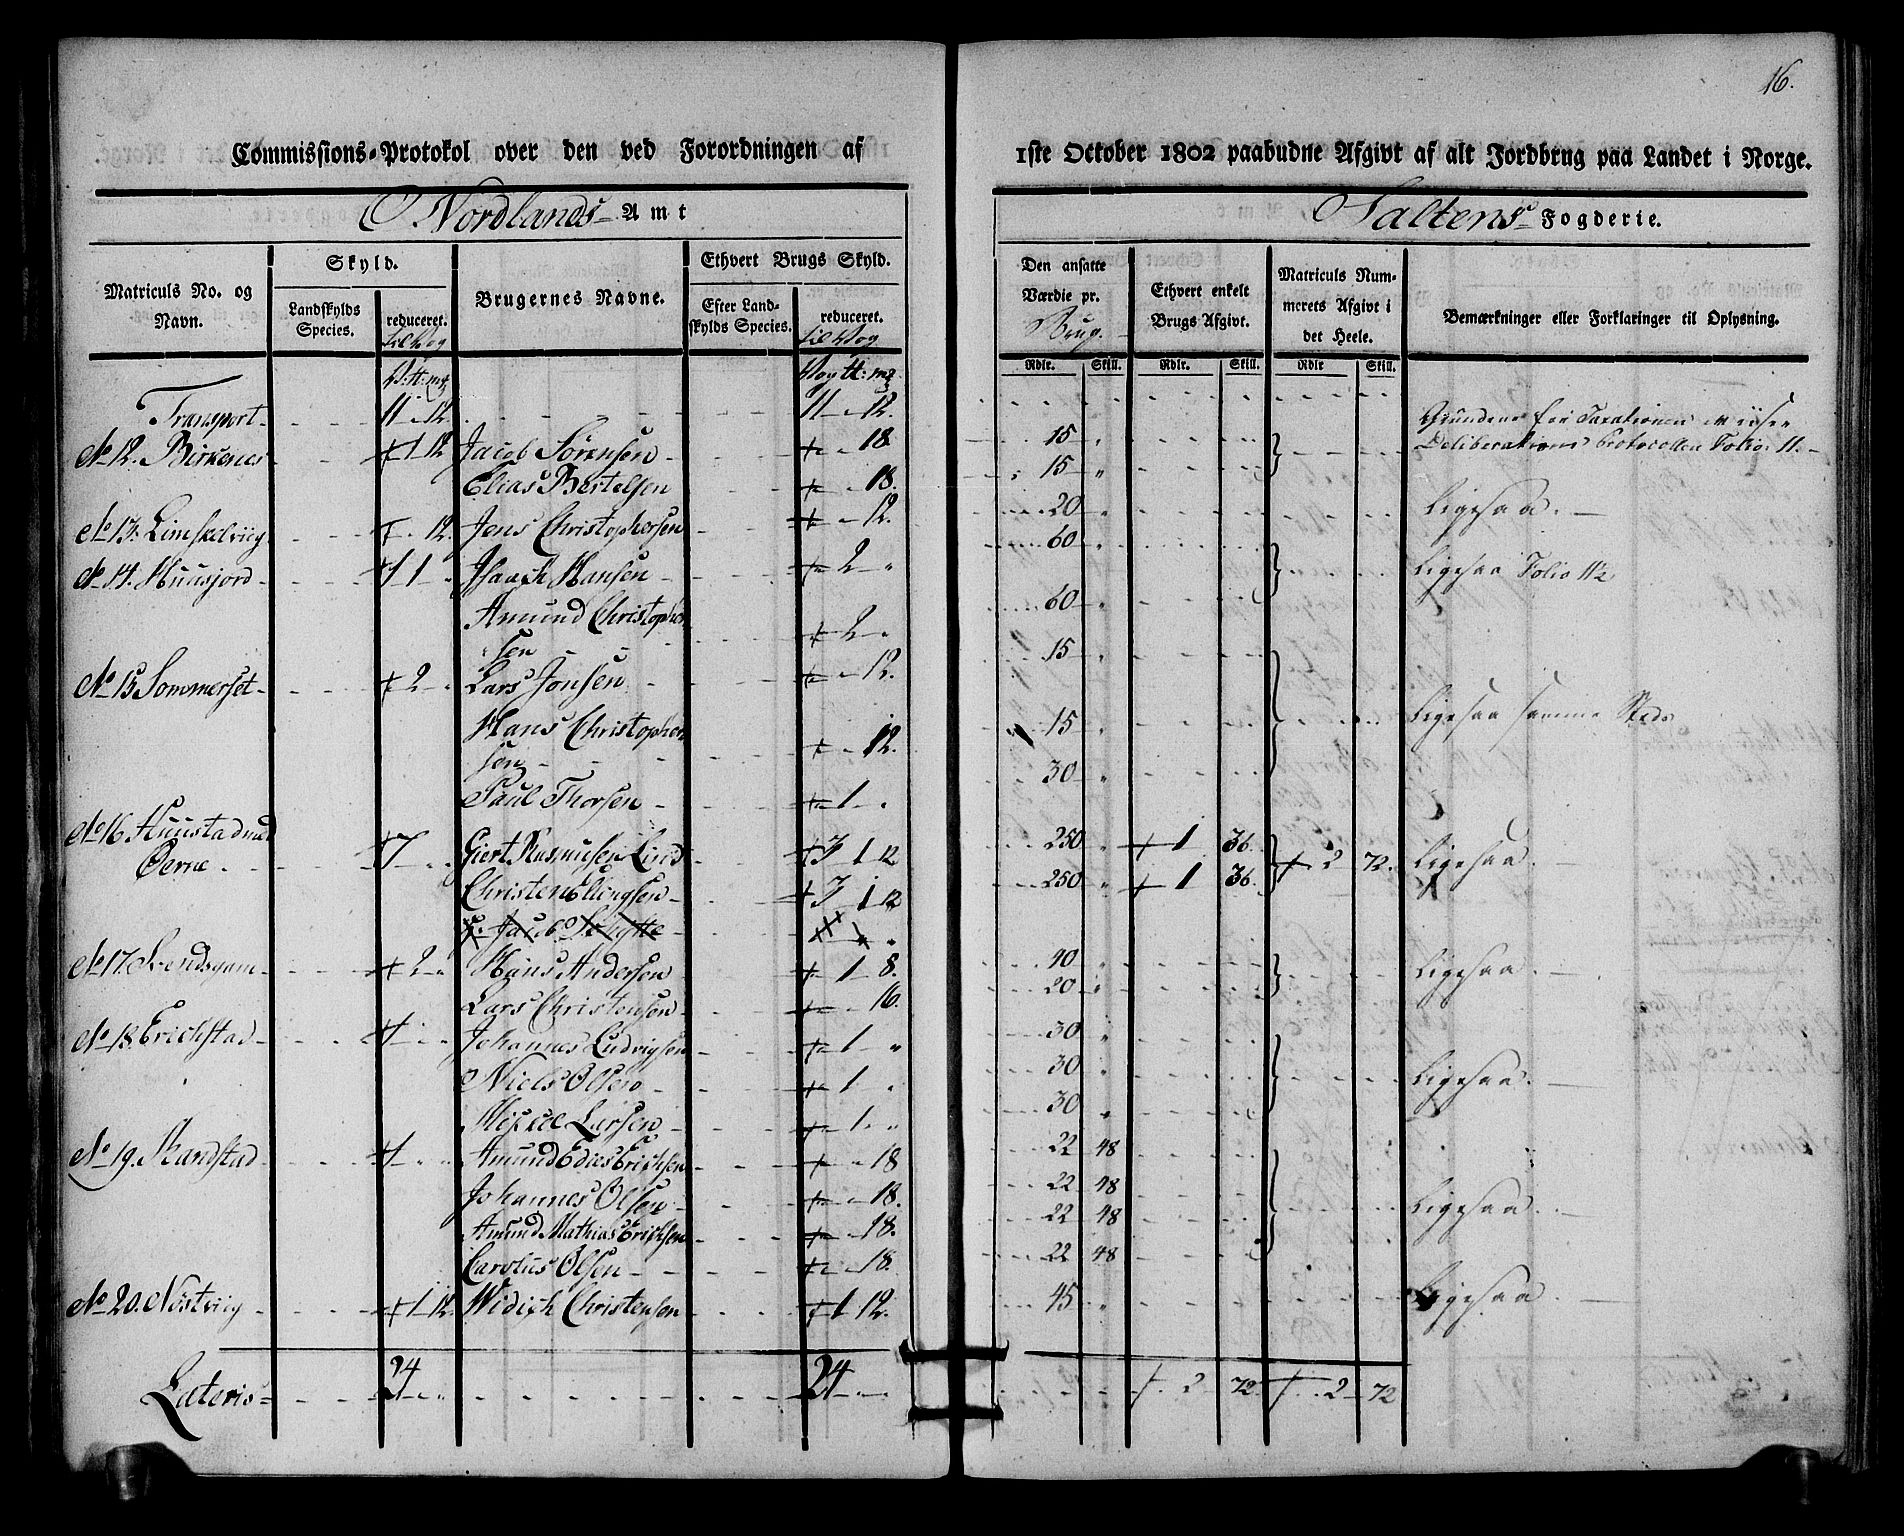 16.
Commissions-Protokol over den ved Forordningen af 1ste October 1802 paabudne Afgivt af alt Jordbrug paa Landet i Norge.
Nordlands Amt
Saltens Fogderie.
Matriculs No. og Navn.
Skyld.
Landskylds Species.
reduceret. til Vog
Brugernes Navne.
Ethvert Brugs Skyld.
Efter Landskylds Species.
reduceret. til Vog
Den ansatte Værdie pr. Brug.
Ethvert enkelt Brugs Afgivt.
Matriculs Nummerets Afgivt i det Heele.
Bemærkninger eller Forklaringer til Oplysning.
Rdlr. Skill. Rdlr. Skill. Rdlr Skill.
Transport 11 - 12. 11 - 12.
No 12. Birkenes 1 12 Jacob Sörensen 18 15 Grundene for Taxationen vises
Deliberations Protocollen Folio 11.
Elias Bertelsen 18. 15
No 13. 12. Jens Christophersen 12. 20 Ligesaa.
No 14. 1 Hansen 2 60 Ligesaa Folio 11½
Amund Christopher
sen 2 60
No 15 Sommerset 2 Lars Jonsen 12. 15
Hans Christopher
sen 12. 15 Ligesaa samme Sted
Paul Thorsen 1 30
No 16 Huustad med
Öerne 7 Giert Rasmusen Lind 3 1 12 250 1 36 2 72. Ligesaa.
Christen Ellingsen 3 1 12 250 1 36
No 17. 2 Hans Andersen 1 8. 40 Ligesaa.
Lars Christensen 16. 20
No 18. Erichstad Johannes Ludvigsen 1 30
Niels Olsen 1 30 Ligesaa.
Larsen 1 30
No 19. Randstad Amund Edies Erichsen 18 22 48
Johannes Olsen 18. 22 48 Ligesaa.
Amund Mathias Erichsen 18. 22 48
Carolus Olsen 18. 22 48
No 20. Nöstviig 1 12. Christensen 1 12. 45 Ligesaa.
Lateris 24 24 2 72 2 72